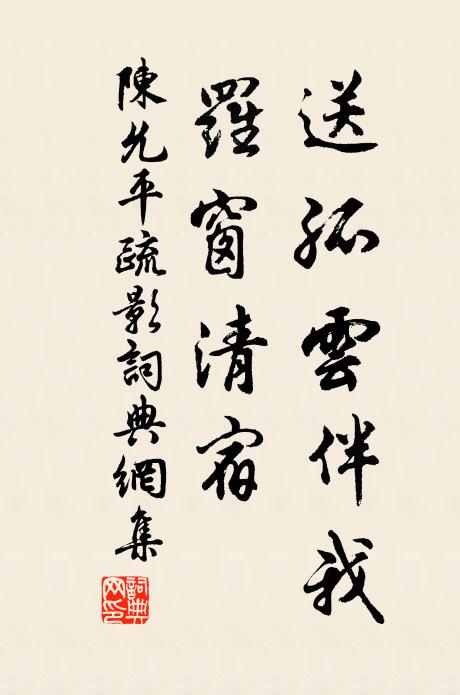 送孤雲伴我
羅窗清宿
陳允平疏影詞典網集
詞典網印